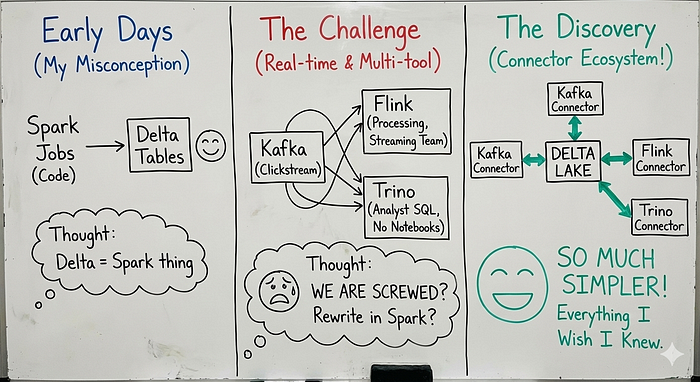 Early Days
(My Misconception)
Spark
Jobs
(Code)
Delta
Tables
Thought:
Delta = Spark thing
The Challenge
(Real-time & Multi-tool)
Kafka
(Clickstream)
Flink
(Processing,
Streaming Team)
Trino
(Analyst SQL,
No Notebooks)
Thought:
WE ARE SCREWED?
Rewrite in Spark?
The Discovery
(Connector Ecosystem!)
Kafka
Connector
Kafka
Connector
DELTA
LAKE
Flink
Connector
Trino
Connector
SO MUCH
SIMPLER!
Everything I
Wish I Knew.